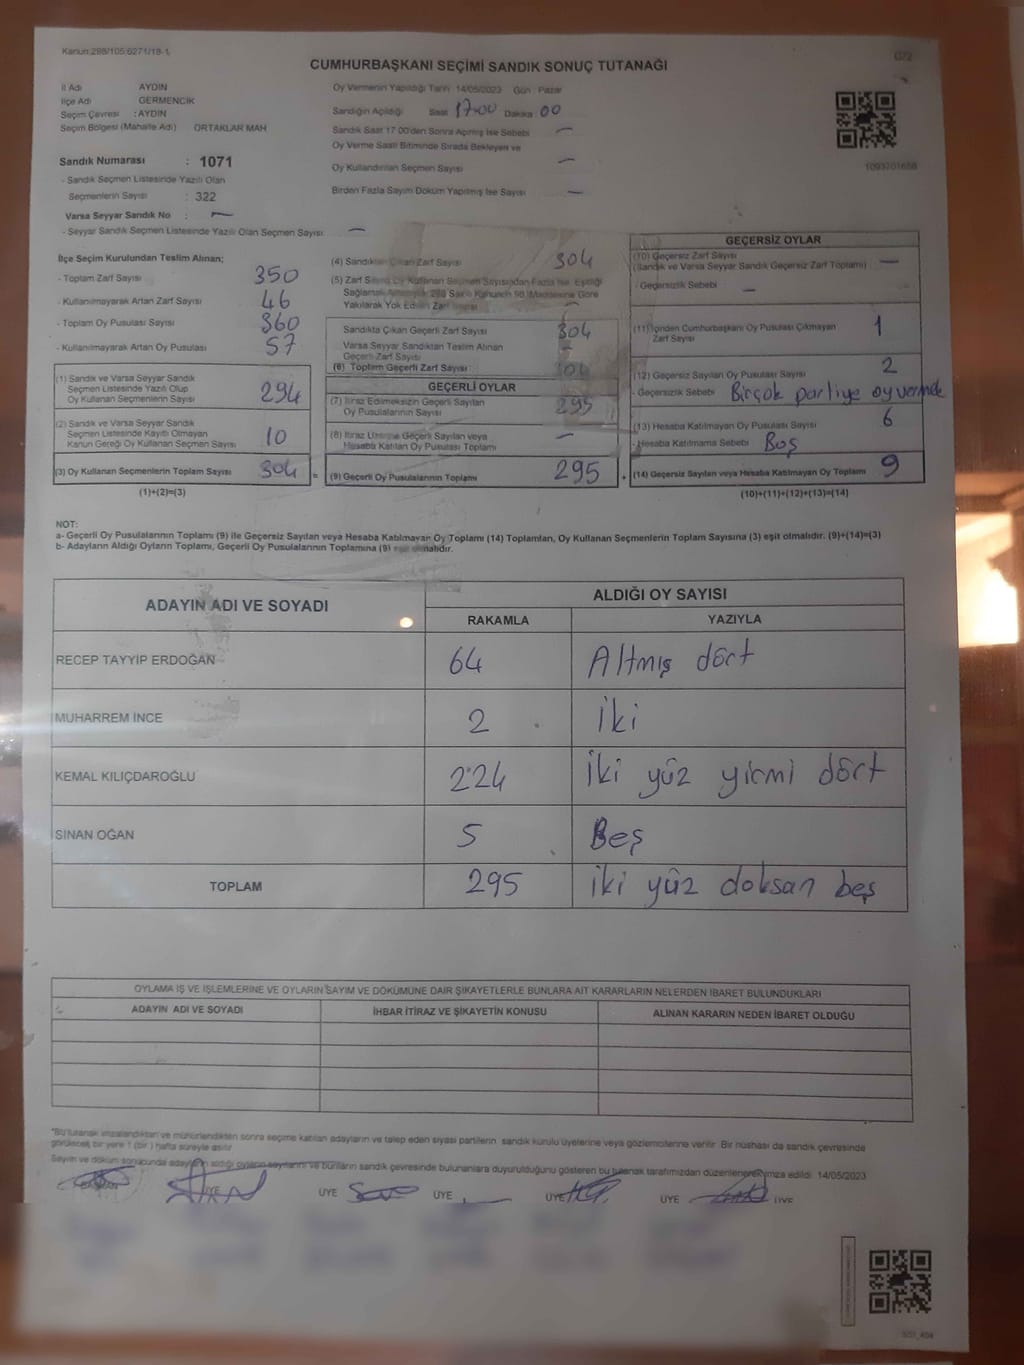 Kanun:298/105 6271/18-1
CUMHURBAŞKANI SEÇİMİ SANDIK SONUÇ TUTANAĞI
İl Adı AYDIN
İlçe Adı GERMENCİK
Seçim Çevresi : AYDIN
Seçim Bölgesi (Mahalle Adı) ORTAKLAR MAH
Sandık Numarası : 1071
- Sandık Seçmen Listesinde Yazılı Olan
Seçmenlerin Sayısı : 322
Varsa Seyyar Sandık No : —
- Seyyar Sandık Seçmen Listesinde Yazılı Olan Seçmen Sayısı —
Oy Vermenin Yapıldığı Tarih 14/05/2023 Gün Pazar
Sandığın Açıldığı Saat 17:00 Dakika 00
Sandık Saat 17 00'den Sonra Açılmış İse Sebebi —
Oy Verme Saati Bitiminde Sırada Bekleyen ve
Oy Kullandırılan Seçmen Sayısı —
Birden Fazla Sayım Döküm Yapılmış İse Sayısı —
İlçe Seçim Kurulundan Teslim Alınan;
- Toplam Zarf Sayısı 350
- Kullanılmayarak Artan Zarf Sayısı 46
- Toplam Oy Pusulası Sayısı 360
- Kullanılmayarak Artan Oy Pusulası 57
(1) Sandık ve Varsa Seyyar Sandık
Seçmen Listesinde Yazılı Olup
Oy Kullanan Seçmenlerin Sayısı 294
(2) Sandık ve Varsa Seyyar Sandık
Seçmen Listesinde Kayıtlı Olmayan
Kanun Gereği Oy Kullanan Seçmen Sayısı 10
(3) Oy Kullanan Seçmenlerin Toplam Sayısı 304 =
(1)+(2)=(3)
(4) Sandıktan Çıkan Zarf Sayısı 304
(5) Zarf Sayısı Oy Kullanan Seçmen Sayısından Fazla İse, Eşitliği
Sağlamak 298 Sayılı Kanunun 98 Maddesine Göre
Yakılarak Yok Edilen Zarf Sayısı —
Sandıkta Çıkan Geçerli Zarf Sayısı 304
Varsa Seyyar Sandıktan Teslim Alınan
Geçerli Zarf Sayısı —
(6) Toplam Geçerli Zarf Sayısı 304
GEÇERLİ OYLAR
(7) İtiraz Edilmeksizin Geçerli Sayılan
Oy Pusulalarının Sayısı 295
(8) İtiraz Üzerine Geçerli Sayılan veya
Hesaba Katılan Oy Pusulası Toplamı —
(9) Geçerli Oy Pusulalarının Toplamı 295 +
GEÇERSİZ OYLAR
(10) Geçersiz Zarf Sayısı
(Sandık ve Varsa Seyyar Sandık Geçersiz Zarf Toplamı) —
- Geçersizlik Sebebi —
(11) İçinden Cumhurbaşkanı Oy Pusulası Çıkmayan
Zarf Sayısı 1
(12) Geçersiz Sayılan Oy Pusulası Sayısı 2
- Geçersizlik Sebebi Birçok partiye oy vermek
(13) Hesaba Katılmayan Oy Pusulası Sayısı 6
- Hesaba Katılmama Sebebi Boş
(14) Geçersiz Sayılan veya Hesaba Katılmayan Oy Toplamı 9
(10)+(11)+(12)+(13)=(14)
NOT:
a- Geçerli Oy Pusulalarının Toplamı (9) ile Geçersiz Sayılan veya Hesaba Katılmayan Oy Toplamı (14) Toplamları, Oy Kullanan Seçmenlerin Toplam Sayısına (3) eşit olmalıdır. (9)+(14)=(3)
b- Adayların Aldığı Oyların Toplamı, Geçerli Oy Pusulalarının Toplamına (9) eşit olmalıdır.
ADAYIN ADI VE SOYADI ALDIĞI OY SAYISI
RAKAMLA YAZIYLA
RECEP TAYYİP ERDOĞAN 64 Altmış dört
MUHARREM İNCE 2 İki
KEMAL KILIÇDAROĞLU 224 İki yüz yirmi dört
SİNAN OĞAN 5 Beş
TOPLAM 295 iki yüz doksan beş
OYLAMA İŞ VE İŞLEMLERİNE VE OYLARIN SAYIM VE DÖKÜMÜNE DAİR ŞİKAYETLERLE BUNLARA AİT KARARLARIN NELERDEN İBARET BULUNDUKLARI
ADAYIN ADI VE SOYADI İHBAR İTİRAZ VE ŞİKAYETİN KONUSU ALINAN KARARIN NEDEN İBARET OLDUĞU
*Bu tutanak imzalandıktan ve mühürlendikten sonra seçime katılan adayların ve talep eden siyasi partilerin sandık kurulu üyelerine veya gözlemcilerine verilir. Bir nüshası da sandık çevresinde
görülecek bir yere 1 (bir ) hafta süreyle asılır
Sayım ve döküm sonucunda adayların aldığı oyların sayılarını ve bunların sandık çevresinde bulunanlara duyurulduğunu gösteren bu tutanak tarafımızdan düzenlenerek imza edildi. 14/05/2023
BAŞKAN ÜYE ÜYE ÜYE ÜYE ÜYE ÜYE